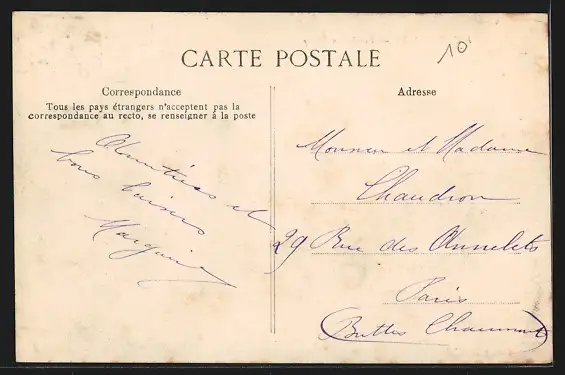 CARTE POSTALE
10
Correspondance
Tous les pays étrangers n'acceptent pas la
correspondance au recto, se renseigner à la poste
Amitiés et
bons baisers
Adresse
Monsieur et Madame
Chaudron
29 Rue des Annelets
Paris
(Buttes Chaumont)